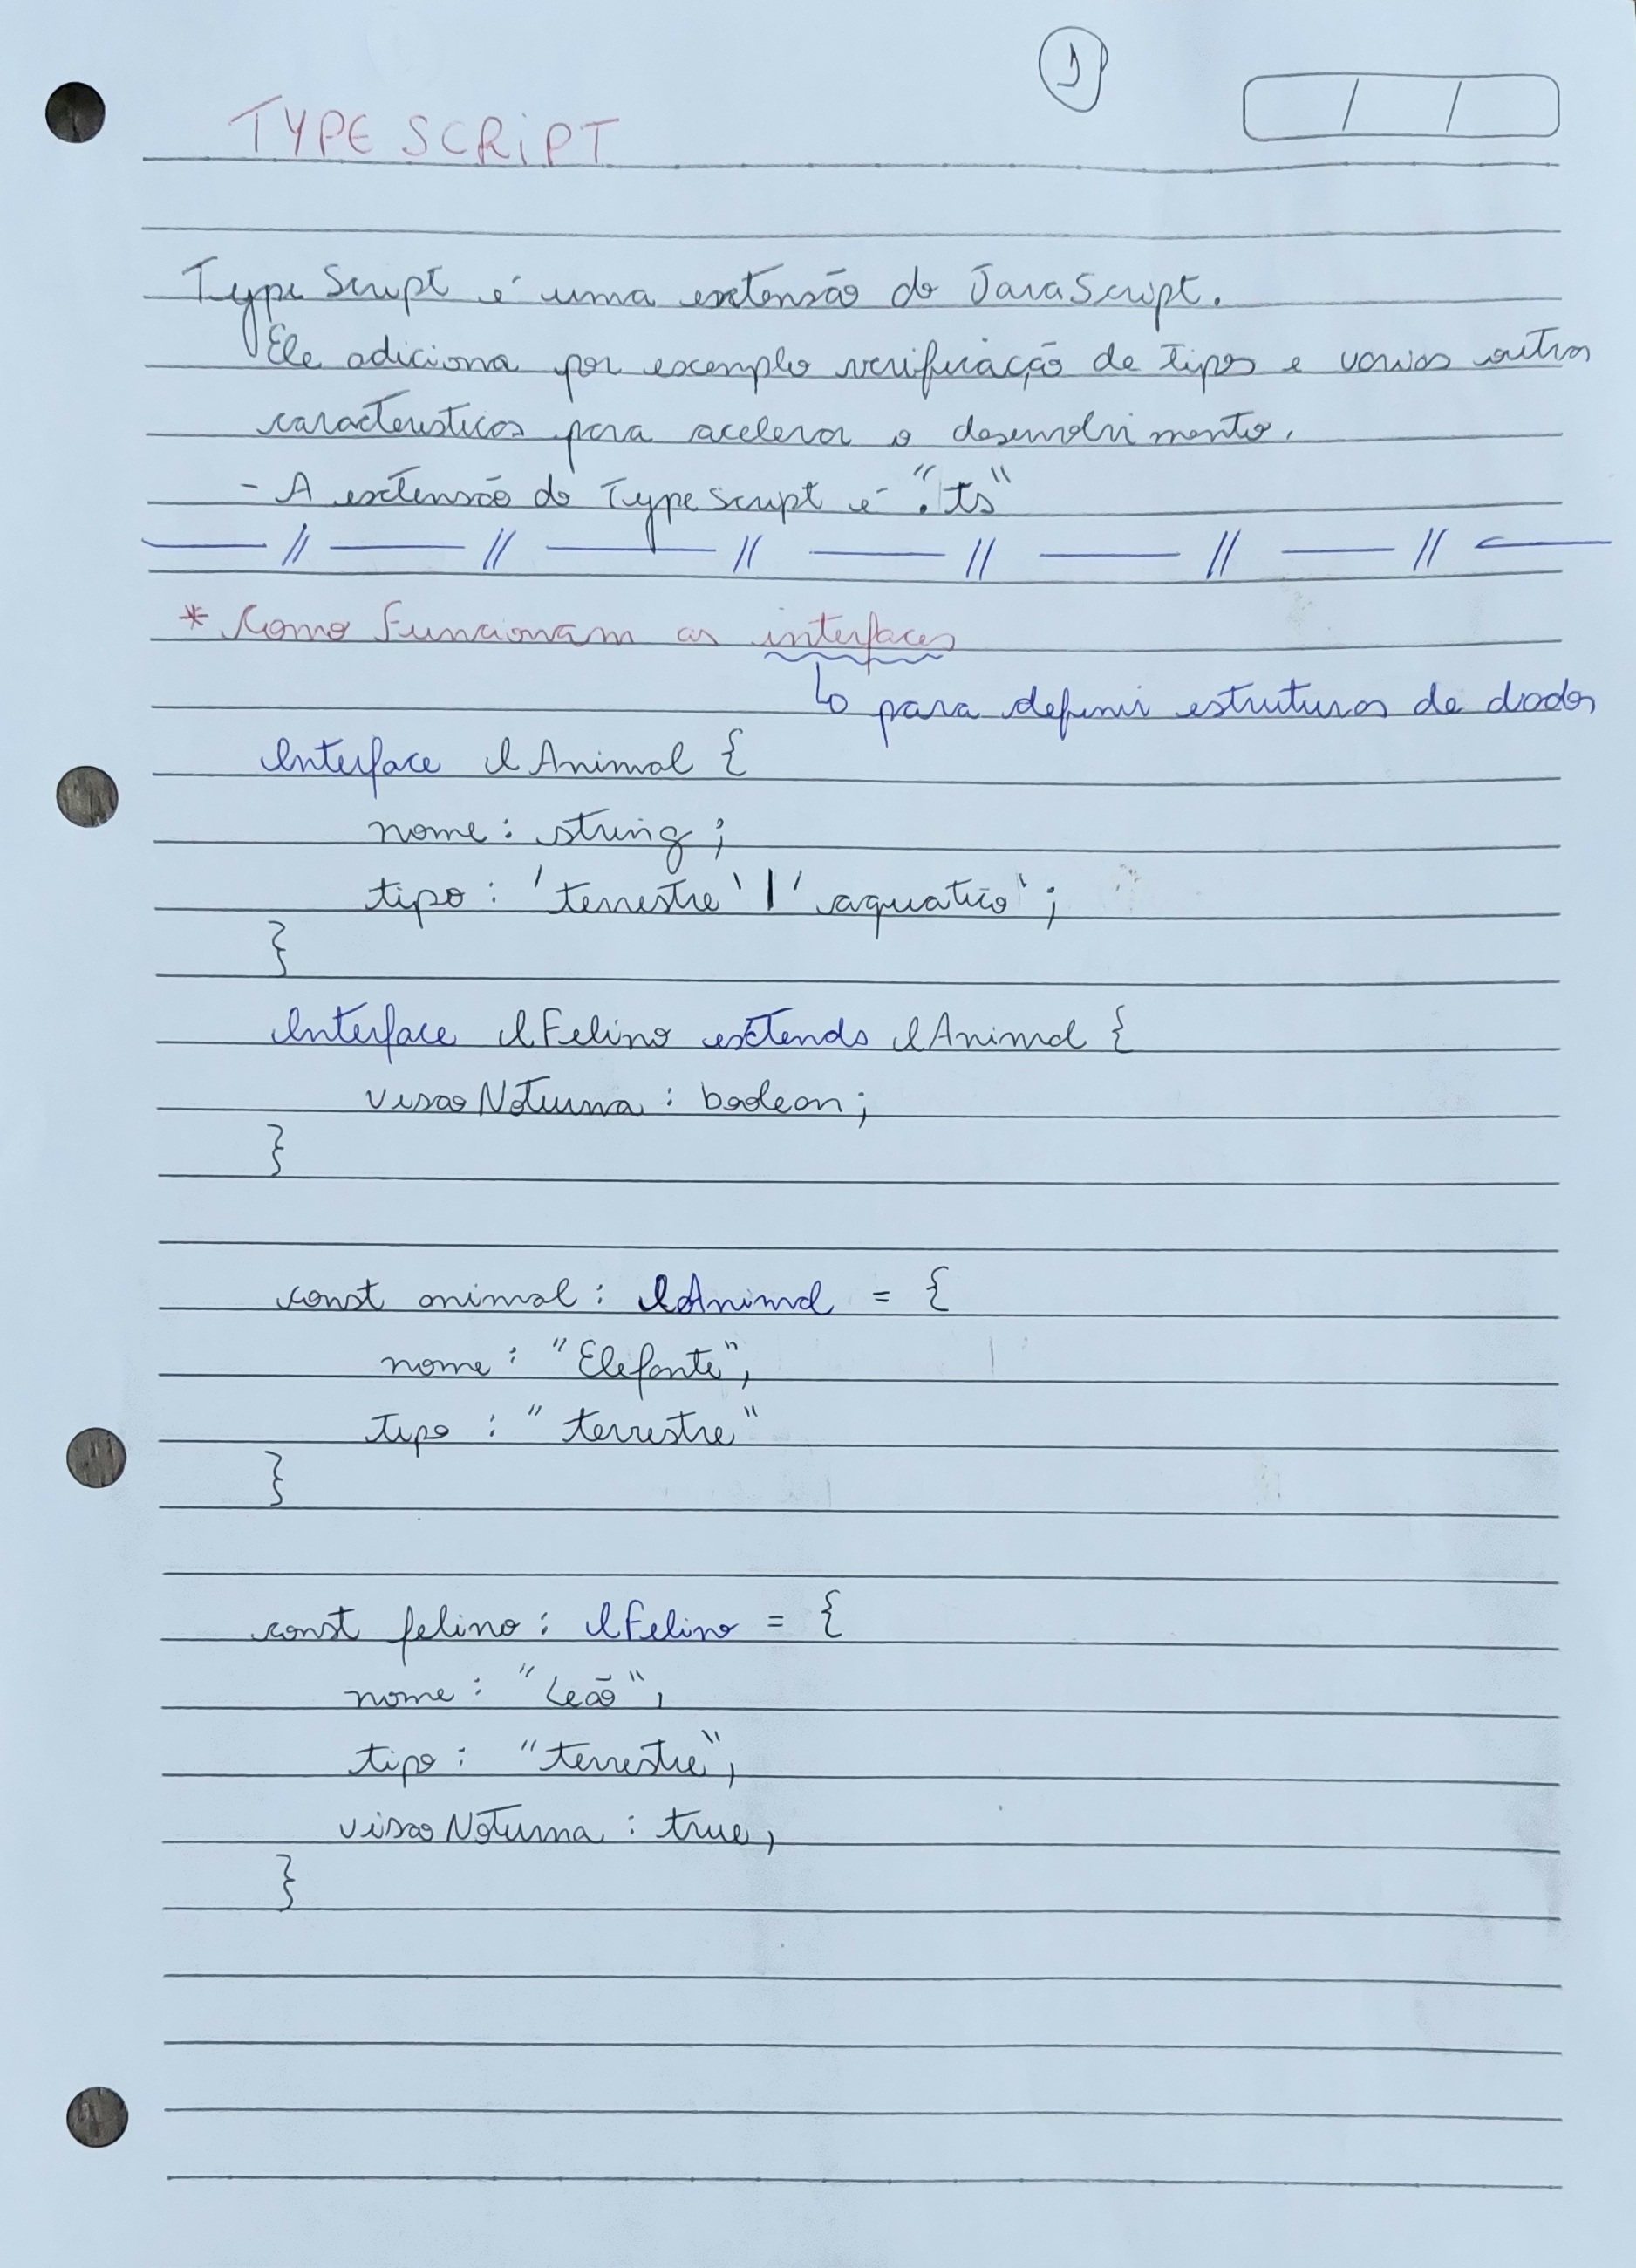 1
TYPE SCRIPT
/ /
TypeScript é uma extensão do JavaScript.
Ele adiciona por exemplo verificação de tipos e varias outras
caracteristicas para acelerar o desenvolvimento.
- A extensão do TypeScript é ".ts"
— // — // — // — // — // — // —
* Como funcionam as interfaces
↳ para definir estruturas de dados
Interface IAnimal {
nome: string;
tipo: 'terrestre' | 'aquatico';
}
Interface IFelino extends IAnimal {
visaoNoturna: boolean;
}
const animal: IAnimal = {
nome: "Elefante",
tipo: "terrestre"
}
const felino: IFelino = {
nome: "Leão",
tipo: "terrestre",
visaoNoturna: true,
}